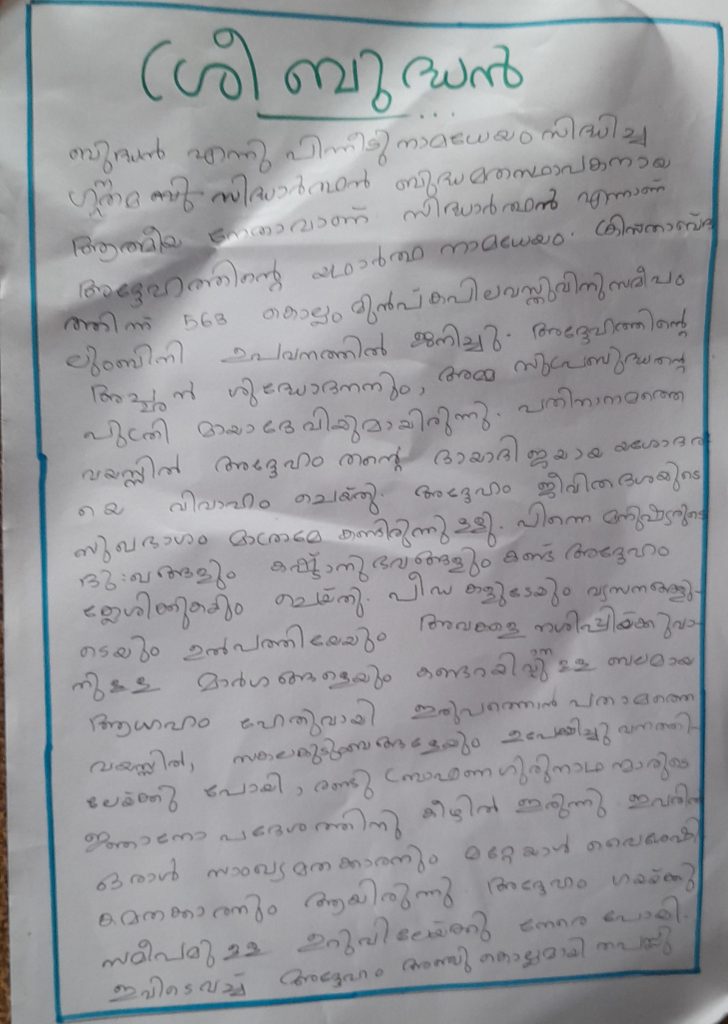 ശ്രീ ബുദ്ധൻ
ബുദ്ധൻ എന്നു പിന്നീടു നാമധേയം സിദ്ധിച്ച
ഗൗതമ ബു സിദ്ധാർത്ഥൻ ബുദ്ധമതസ്ഥാപകനായ
ആത്മീയ നേതാവാണ് സിദ്ധാർത്ഥൻ എന്നാണ്
അദ്ദേഹത്തിന്റെ യഥാർത്ഥ നാമധേയം. ക്രിസ്താബ്ദ
ത്തിന് 563 കൊല്ലം മുൻപ് കപിലവസ്തുവിനു സമീപം
ലുംബിനി ഉപവനത്തിൽ ജനിച്ചു. അദ്ദേഹത്തിന്റെ
അച്ഛൻ ശുദ്ധോദനനും, അമ്മ സുപ്രബുദ്ധന്റെ
പുത്രി മായാദേവിയുമായിരുന്നു. പതിനാറാമത്തെ
വയസ്സിൽ അദ്ദേഹം തന്റെ ദായാദി ജയായ യശോദര
യെ വിവാഹം ചെയ്തു. അദ്ദേഹം ജീവിതദശയുടെ
സുഖഭാഗം മാത്രമേ കണ്ടിരുന്നുള്ളു. പിന്നെ മനുഷ്യരുടെ
ദുഃഖങ്ങളും കഷ്ടാനുഭവങ്ങളും കണ്ട് അദ്ദേഹം
ക്ലേശിക്കുകയും ചെയ്തു. പീഡകളുടേയും വ്യസനങ്ങളു-
ടെയും ഉൽപത്തിയേയും അവകളെ നശിപ്പിയ്ക്കുവാ-
നുള്ള മാർഗങ്ങളെയും കണ്ടറിയിവാനുള്ള ബലമായ
ആഗ്രഹം ഹേതുവായി ഇരുപത്തൊൻപതാമത്തെ
വയസ്സിൽ, സകലകുടുംബങ്ങളേയും ഉപേക്ഷിച്ചു വനത്തി-
ലേയ്ക്കു പോയി, രണ്ടു ബ്രാഹ്മണ ഗുരുനാഥന്മാരുടെ
ജ്ഞാനോപദേശത്തിനു കീഴിൽ ഇരുന്നു ഇവരിൽ
ഒരാൾ സാംഖ്യമതക്കാരനും മറ്റേയാൾ വൈശേഷി
കമതക്കാരനും ആയിരുന്നു അദ്ദേഹം ഗയയ്ക്കു
സമീപമുള്ള ഉറുവിലേയ്ക്കു നേരെ പോയി.
ഇവിടെവച്ച് അദ്ദേഹം അഞ്ചു കൊല്ലമായി തപസ്സു